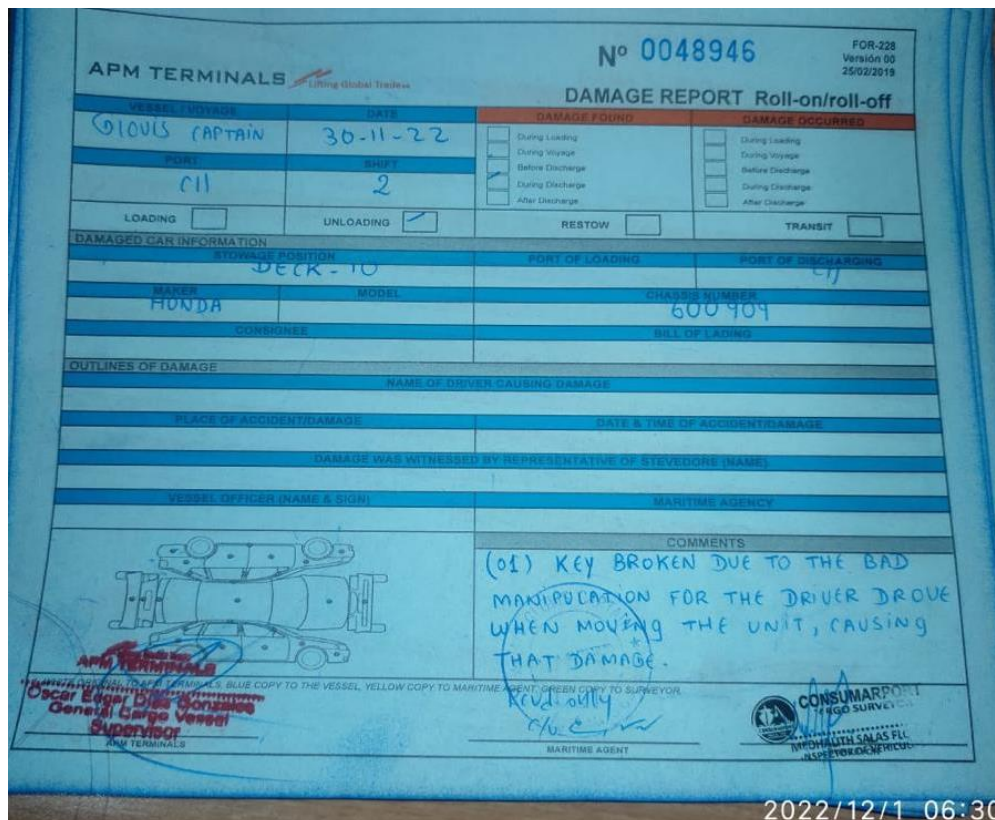 APM TERMINALS
Lifting Global Trade
Nº 0048946
FOR-228
Versión 00
25/02/2019
DAMAGE REPORT Roll-on/roll-off
VESSEL / VOYAGE DATE DAMAGE FOUND DAMAGE OCCURRED
GLOVIS CAPTAIN 30-11-22
During Loading During Loading
During Voyage During Voyage
PORT SHIFT Before Discharge Before Discharge
2 During Discharge During Discharge
After Discharge After Discharge
LOADING UNLOADING RESTOW TRANSIT
DAMAGED CAR INFORMATION
STOWAGE POSITION PORT OF LOADING PORT OF DISCHARGING
DECK-10
MAKER MODEL CHASSIS NUMBER
HONDA 600909
CONSIGNEE BILL OF LADING
OUTLINES OF DAMAGE
NAME OF DRIVER CAUSING DAMAGE
PLACE OF ACCIDENT/DAMAGE DATE & TIME OF ACCIDENT/DAMAGE
DAMAGE WAS WITNESSED BY REPRESENTATIVE OF STEVEDORE (NAME)
VESSEL OFFICER (NAME & SIGN) MARITIME AGENCY
COMMENTS
(01) KEY BROKEN DUE TO THE BAD
MANIPULATION FOR THE DRIVER DROVE
WHEN MOVING THE UNIT, CAUSING
THAT DAMAGE.
APM TERMINALS
ORIGINAL TO APM TERMINALS, BLUE COPY TO THE VESSEL, YELLOW COPY TO MARITIME AGENT, GREEN COPY TO SURVEYOR
Oscar Edgar Dias Gonzales
General Cargo Vessel
Supervisor
APM TERMINALS
Rcvd only
MARITIME AGENT
CONSUMARPORT
CARGO SURVEYOR
SALAS
INSPECTOR DE VEHICUL
2022/12/1 06:30